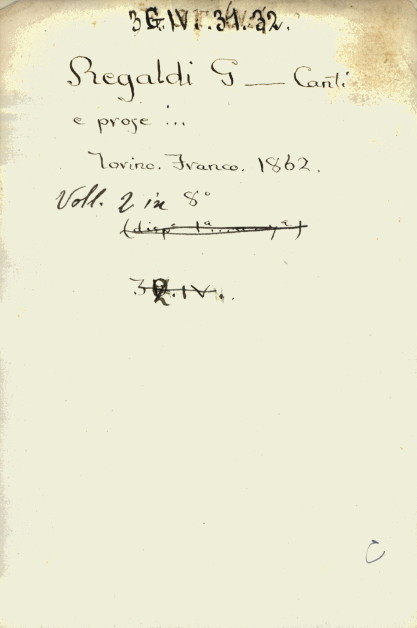 3G.IV.31.32.
Regaldi G — Canti
e prose ...
Torino. Franco. 1862.
Voll. 2 in 8°
(disp. 1ª
3 .IV.
C